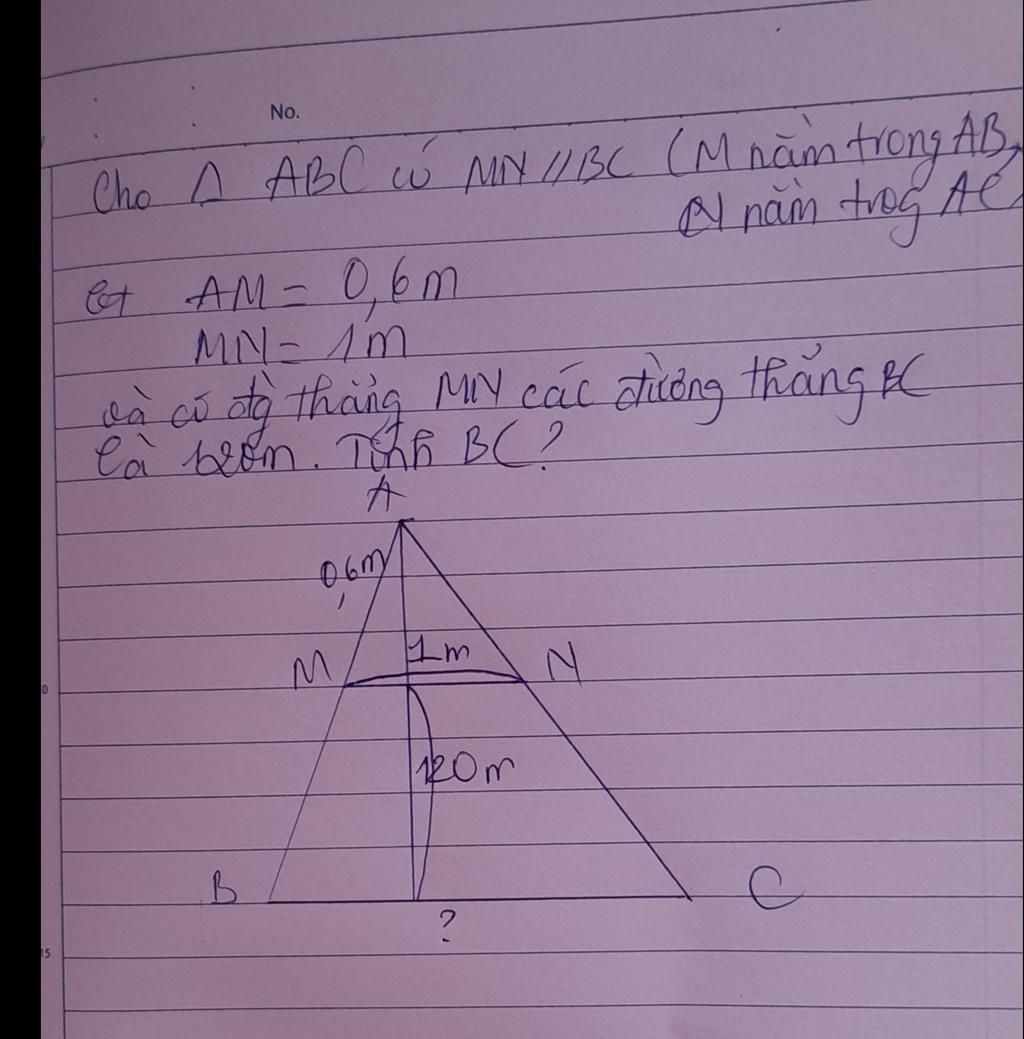 No.
Cho Δ ABC có MN // BC (M nằm trong AB,
N nằm trog AC
AM = 0,6m
MN = 1m
và có đg thẳng MN các đường thẳng BC
là 120m. Tính BC?
A
0,6m
M 1m N
120m
B C
?